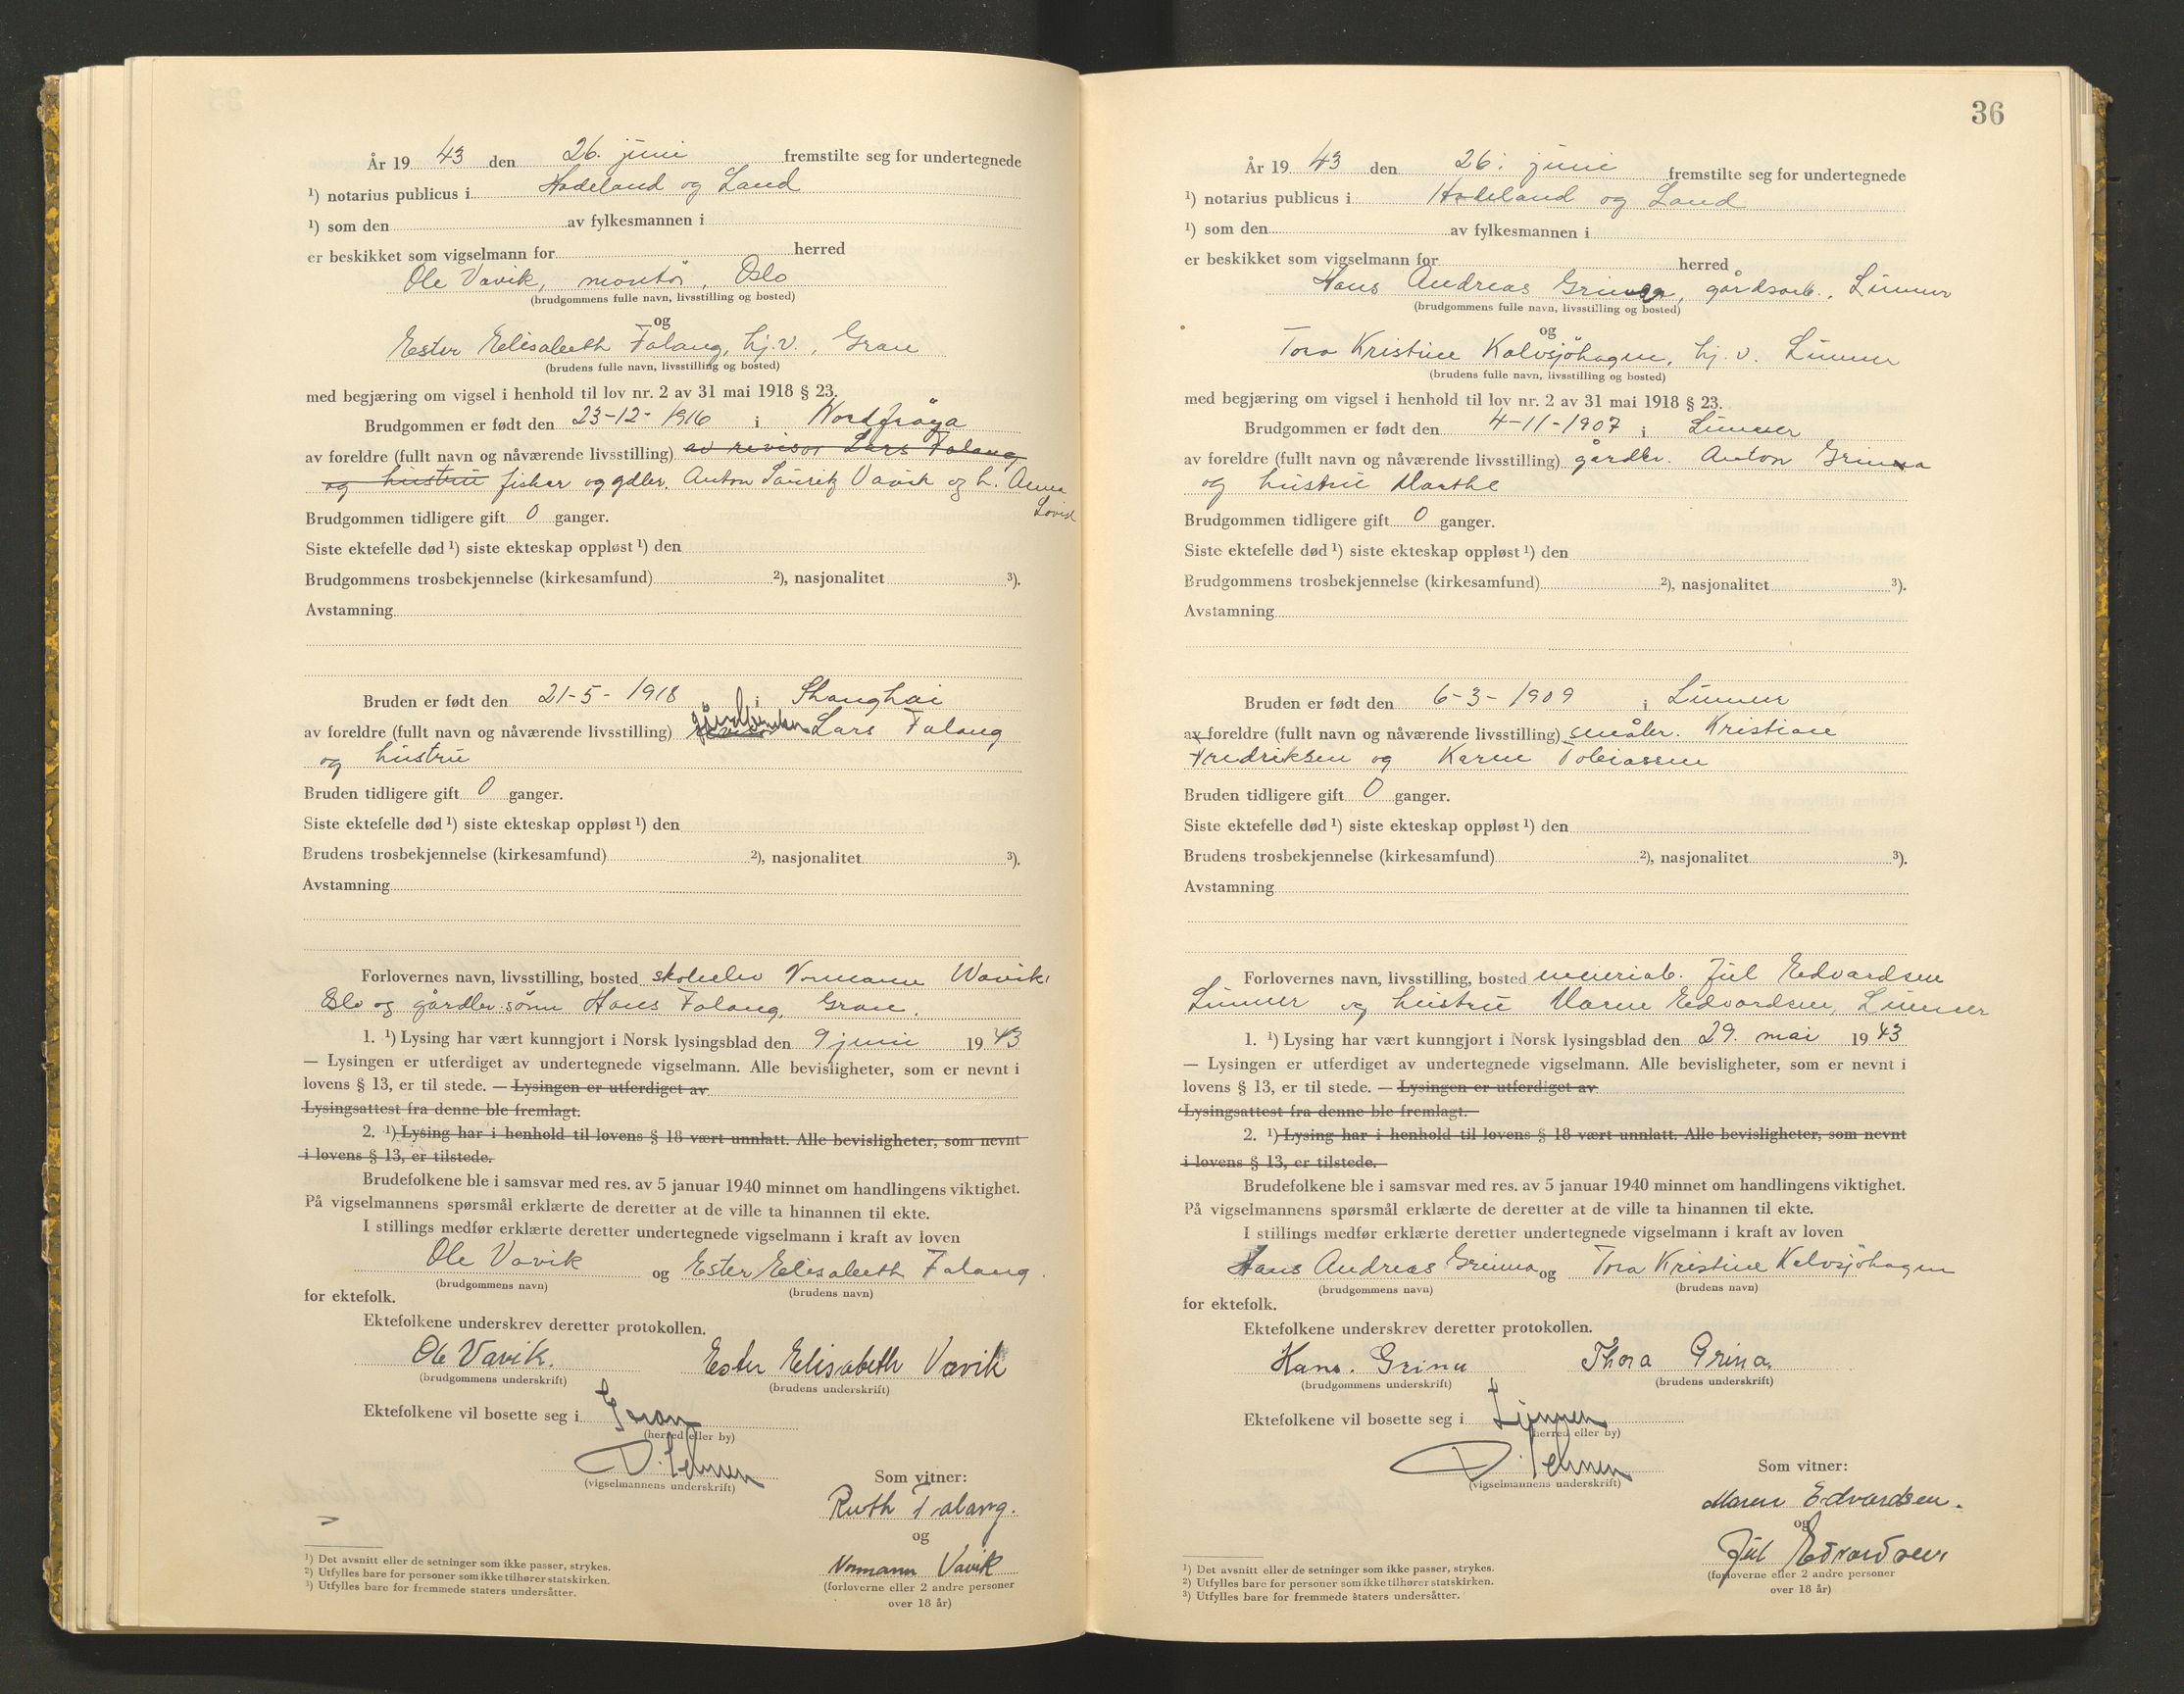 År 19 43 den 26. juni fremstilte seg for undertegnede
¹) notarius publicus i Hadeland og Land
¹) som den av fylkesmannen i
er beskikket som vigselmann for herred
Ole Vavik, montør, Oslo
(brudgommens fulle navn, livsstilling og bosted)
og
Ester Elisabeth Falang, hj.v., Gran
(brudens fulle navn, livsstilling og bosted)
med begjæring om vigsel i henhold til lov nr. 2 av 31 mai 1918 § 23.
Brudgommen er født den 23-12-1916 i Nordfrøya
av foreldre (fullt navn og nåværende livsstilling) av revisor Lars Falang
og hustru fisker og gdbr. Anton Lauritz Vavik og h. Anna
Lovise
Brudgommen tidligere gift 0 ganger.
Siste ektefelle død ¹) siste ekteskap oppløst ¹) den
Brudgommens trosbekjennelse (kirkesamfund) ²), nasjonalitet ³).
Avstamning
Bruden er født den 21-5-1918 i Shanghai
av foreldre (fullt navn og nåværende livsstilling) gårdbruker Lars Falang
og hustru
Bruden tidligere gift 0 ganger.
Siste ektefelle død ¹) siste ekteskap oppløst ¹) den
Brudens trosbekjennelse (kirkesamfund) ²), nasjonalitet ³).
Avstamning
Forlovernes navn, livsstilling, bosted skoleelev Normann Wavik,
Oslo og gårdbr.sønn Hans Falang, Gran.
1. ¹) Lysing har vært kunngjort i Norsk lysingsblad den 9 juni 19 43
— Lysingen er utferdiget av undertegnede vigselmann. Alle bevisligheter, som er nevnt i
lovens § 13, er til stede. — Lysingen er utferdiget av
Lysingsattest fra denne ble fremlagt.
2. ¹) Lysing har i henhold til lovens § 18 vært unnlatt. Alle bevisligheter, som nevnt
i lovens § 13, er tilstede.
Brudefolkene ble i samsvar med res. av 5 januar 1940 minnet om handlingens viktighet.
På vigselmannens spørsmål erklærte de deretter at de ville ta hinannen til ekte.
I stillings medfør erklærte deretter undertegnede vigselmann i kraft av loven
Ole Vavik og Ester Elisabeth Falang.
(brudgommens navn) (brudens navn)
for ektefolk.
Ektefolkene underskrev deretter protokollen.
Ole Vavik. Ester Elisabeth Vavik
(brudgommens underskrift) (brudens underskrift)
Ektefolkene vil bosette seg i Gran
(herred eller by)
(vigselmannens underskrift)
Som vitner:
Ruth Falang.
og
Normann Vavik
(forloverne eller 2 andre personer
over 18 år)
¹) Det avsnitt eller de setninger som ikke passer, strykes.
²) Utfylles bare for personer som ikke tilhører statskirken.
³) Utfylles bare for fremmede staters undersåtter.
36
År 19 43 den 26. juni fremstilte seg for undertegnede
¹) notarius publicus i Hadeland og Land
¹) som den av fylkesmannen i
er beskikket som vigselmann for herred
Hans Andreas Grina, gårdsarb., Lunner
(brudgommens fulle navn, livsstilling og bosted)
og
Tora Kristine Kalvsjöhagen, hj.v. Lunner
(brudens fulle navn, livsstilling og bosted)
med begjæring om vigsel i henhold til lov nr. 2 av 31 mai 1918 § 23.
Brudgommen er født den 4-11-1907 i Lunner
av foreldre (fullt navn og nåværende livsstilling) gårdbr. Anton Grina
og hustru Marthe
Brudgommen tidligere gift 0 ganger.
Siste ektefelle død ¹) siste ekteskap oppløst ¹) den
Brudgommens trosbekjennelse (kirkesamfund) ²), nasjonalitet ³).
Avstamning
Bruden er født den 6-3-1909 i Lunner
av foreldre (fullt navn og nåværende livsstilling) småbr. Kristian
Fredriksen og Karen Tobiassen
Bruden tidligere gift 0 ganger.
Siste ektefelle død ¹) siste ekteskap oppløst ¹) den
Brudens trosbekjennelse (kirkesamfund) ²), nasjonalitet ³).
Avstamning
Forlovernes navn, livsstilling, bosted meieriarb. Jul Edvardsen
Lunner og hustru Maren Edvardsen, Lunner
1. ¹) Lysing har vært kunngjort i Norsk lysingsblad den 29. mai 19 43
— Lysingen er utferdiget av undertegnede vigselmann. Alle bevisligheter, som er nevnt i
lovens § 13, er til stede. — Lysingen er utferdiget av
Lysingsattest fra denne ble fremlagt.
2. ¹) Lysing har i henhold til lovens § 18 vært unnlatt. Alle bevisligheter, som nevnt
i lovens § 13, er tilstede.
Brudefolkene ble i samsvar med res. av 5 januar 1940 minnet om handlingens viktighet.
På vigselmannens spørsmål erklærte de deretter at de ville ta hinannen til ekte.
I stillings medfør erklærte deretter undertegnede vigselmann i kraft av loven
Hans Andreas Grinna og Tora Kristine Kalvsjöhagen
(brudgommens navn) (brudens navn)
for ektefolk.
Ektefolkene underskrev deretter protokollen.
Hans. Grina Thora Grina.
(brudgommens underskrift) (brudens underskrift)
Ektefolkene vil bosette seg i Lunner
(herred eller by)
(vigselmannens underskrift)
Som vitner:
Maren Edvardsen.
og
Jul Edvardsen
(forloverne eller 2 andre personer
over 18 år)
¹) Det avsnitt eller de setninger som ikke passer, strykes.
²) Utfylles bare for personer som ikke tilhører statskirken.
³) Utfylles bare for fremmede staters undersåtter.